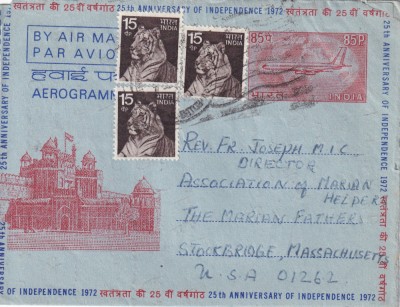 स्वतंत्रता की 25 वीं वर्षगांठ 25th ANNIVERSARY OF INDEPENDENCE 1972 स्वतंत्रता की 25 वीं वर्षगांठ
BY AIR MA
PAR AVIO
हवाई प
AEROGRAMM
15 भारत INDIA
15 भारत INDIA
15 भारत INDIA
85 प
85P
भारत
INDIA
REV. FR. JOSEPH M.I.C.
DIRECTOR
ASSOCIATION OF MARIAN
HELPERS
THE MARIAN FATHERS
STOCKBRIDGE, MASSACHUSETTS
U.S.A 01262
25th ANNIVERSARY OF INDEPENDENCE 1972
25th ANNIVERSARY
OF INDEPENDENCE 1972 स्वतंत्रता की 25 वीं वर्षगांठ 25th ANNIVERSARY OF INDEPENDENCE 1972 स्वतंत्रता की 25 वीं वर्षगांठ